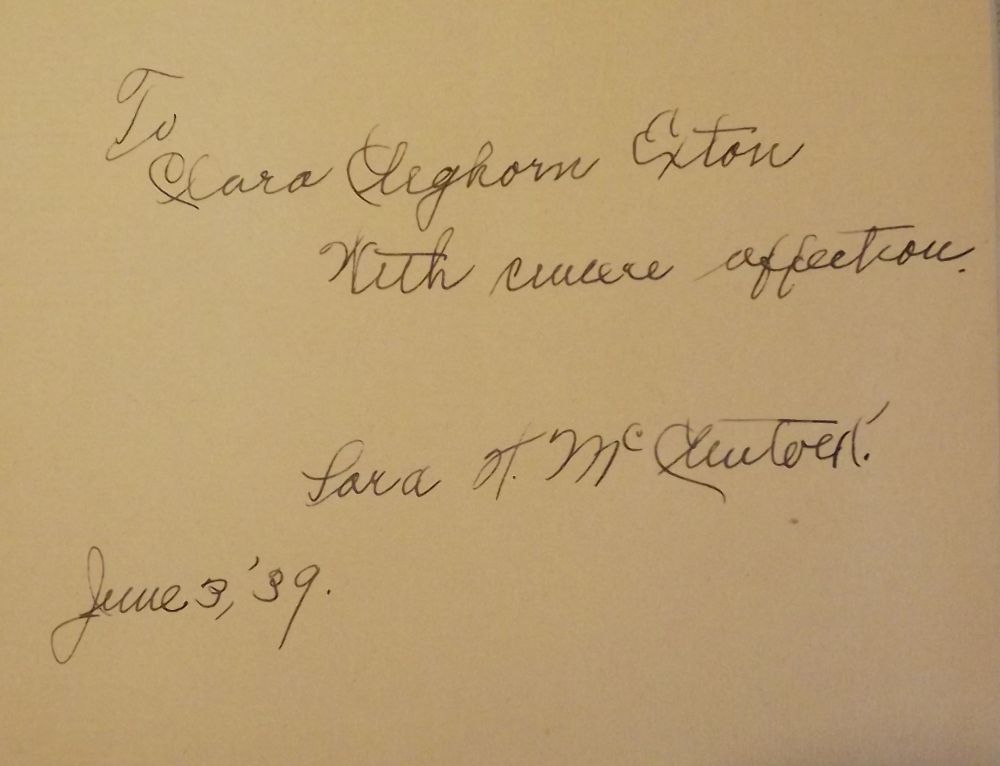 To
Clara Cleghorn Exton
With sincere affection.
Sara H. McClintock.
June 3, '39.